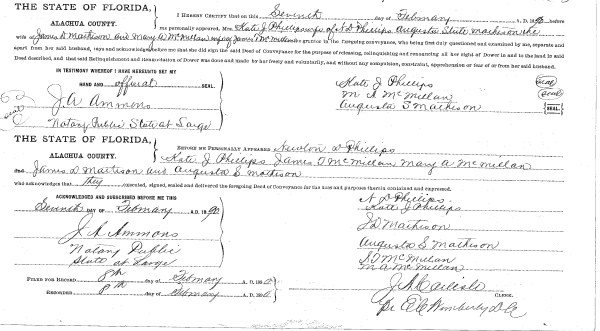 THE STATE OF FLORIDA,
ALACHUA COUNTY.
I HEREBY CERTIFY that on this Seventh day of February A. D. 1890 before
me personally appeared Mrs Kate J Phillips wife of N D Phillips Augusta S Mathison the
wife of James D Mathison and Mary A McMillan wife of James T McMillan grantor in the foregoing conveyance, who being first duly questioned and examined by me, separate and
apart from her said husband, says and acknowledges before me that she did sign the said Deed of Conveyance for the purpose of releasing, relinquishing and renouncing all her right of Dower in and to the land in said
Deed described, and that said Relinquishment and Renunciation of Dower was done and made by her freely and voluntarily, and without any compulsion, constraint, apprehension or fear of or from her said husband.
IN TESTIMONY WHEREOF I HAVE HEREUNTO SET MY
HAND AND official SEAL.
J. A. Ammons
Notary Public State at Large
seal
Kate J Phillips (seal)
M A McMillan (seal)
Augusta S Mathison {SEAL.}
THE STATE OF FLORIDA,
ALACHUA COUNTY.
BEFORE ME PERSONALLY APPEARED Newton D Phillips
Kate J Phillips James T McMillan Mary A McMillan
James D Mathison and Augusta S Mathison
who acknowledges that they executed, signed, sealed and delivered the foregoing Deed of Conveyance for the uses and purposes therein contained and expressed.
ACKNOWLEDGED AND SUBSCRIBED BEFORE ME THIS
Seventh DAY OF February A. D. 1890
J. A Ammons
Notary Public
State at Large
N D Phillips
Kate J Phillips
J D Mathison
Augusta S Mathison
J T McMillan
M A McMillan
FILED FOR RECORD 8th day of February A. D. 1890
RECORDED 8th day of February A. D. 1890
J. A. Carlisle CLERK.
Pr E C Wimberly D C